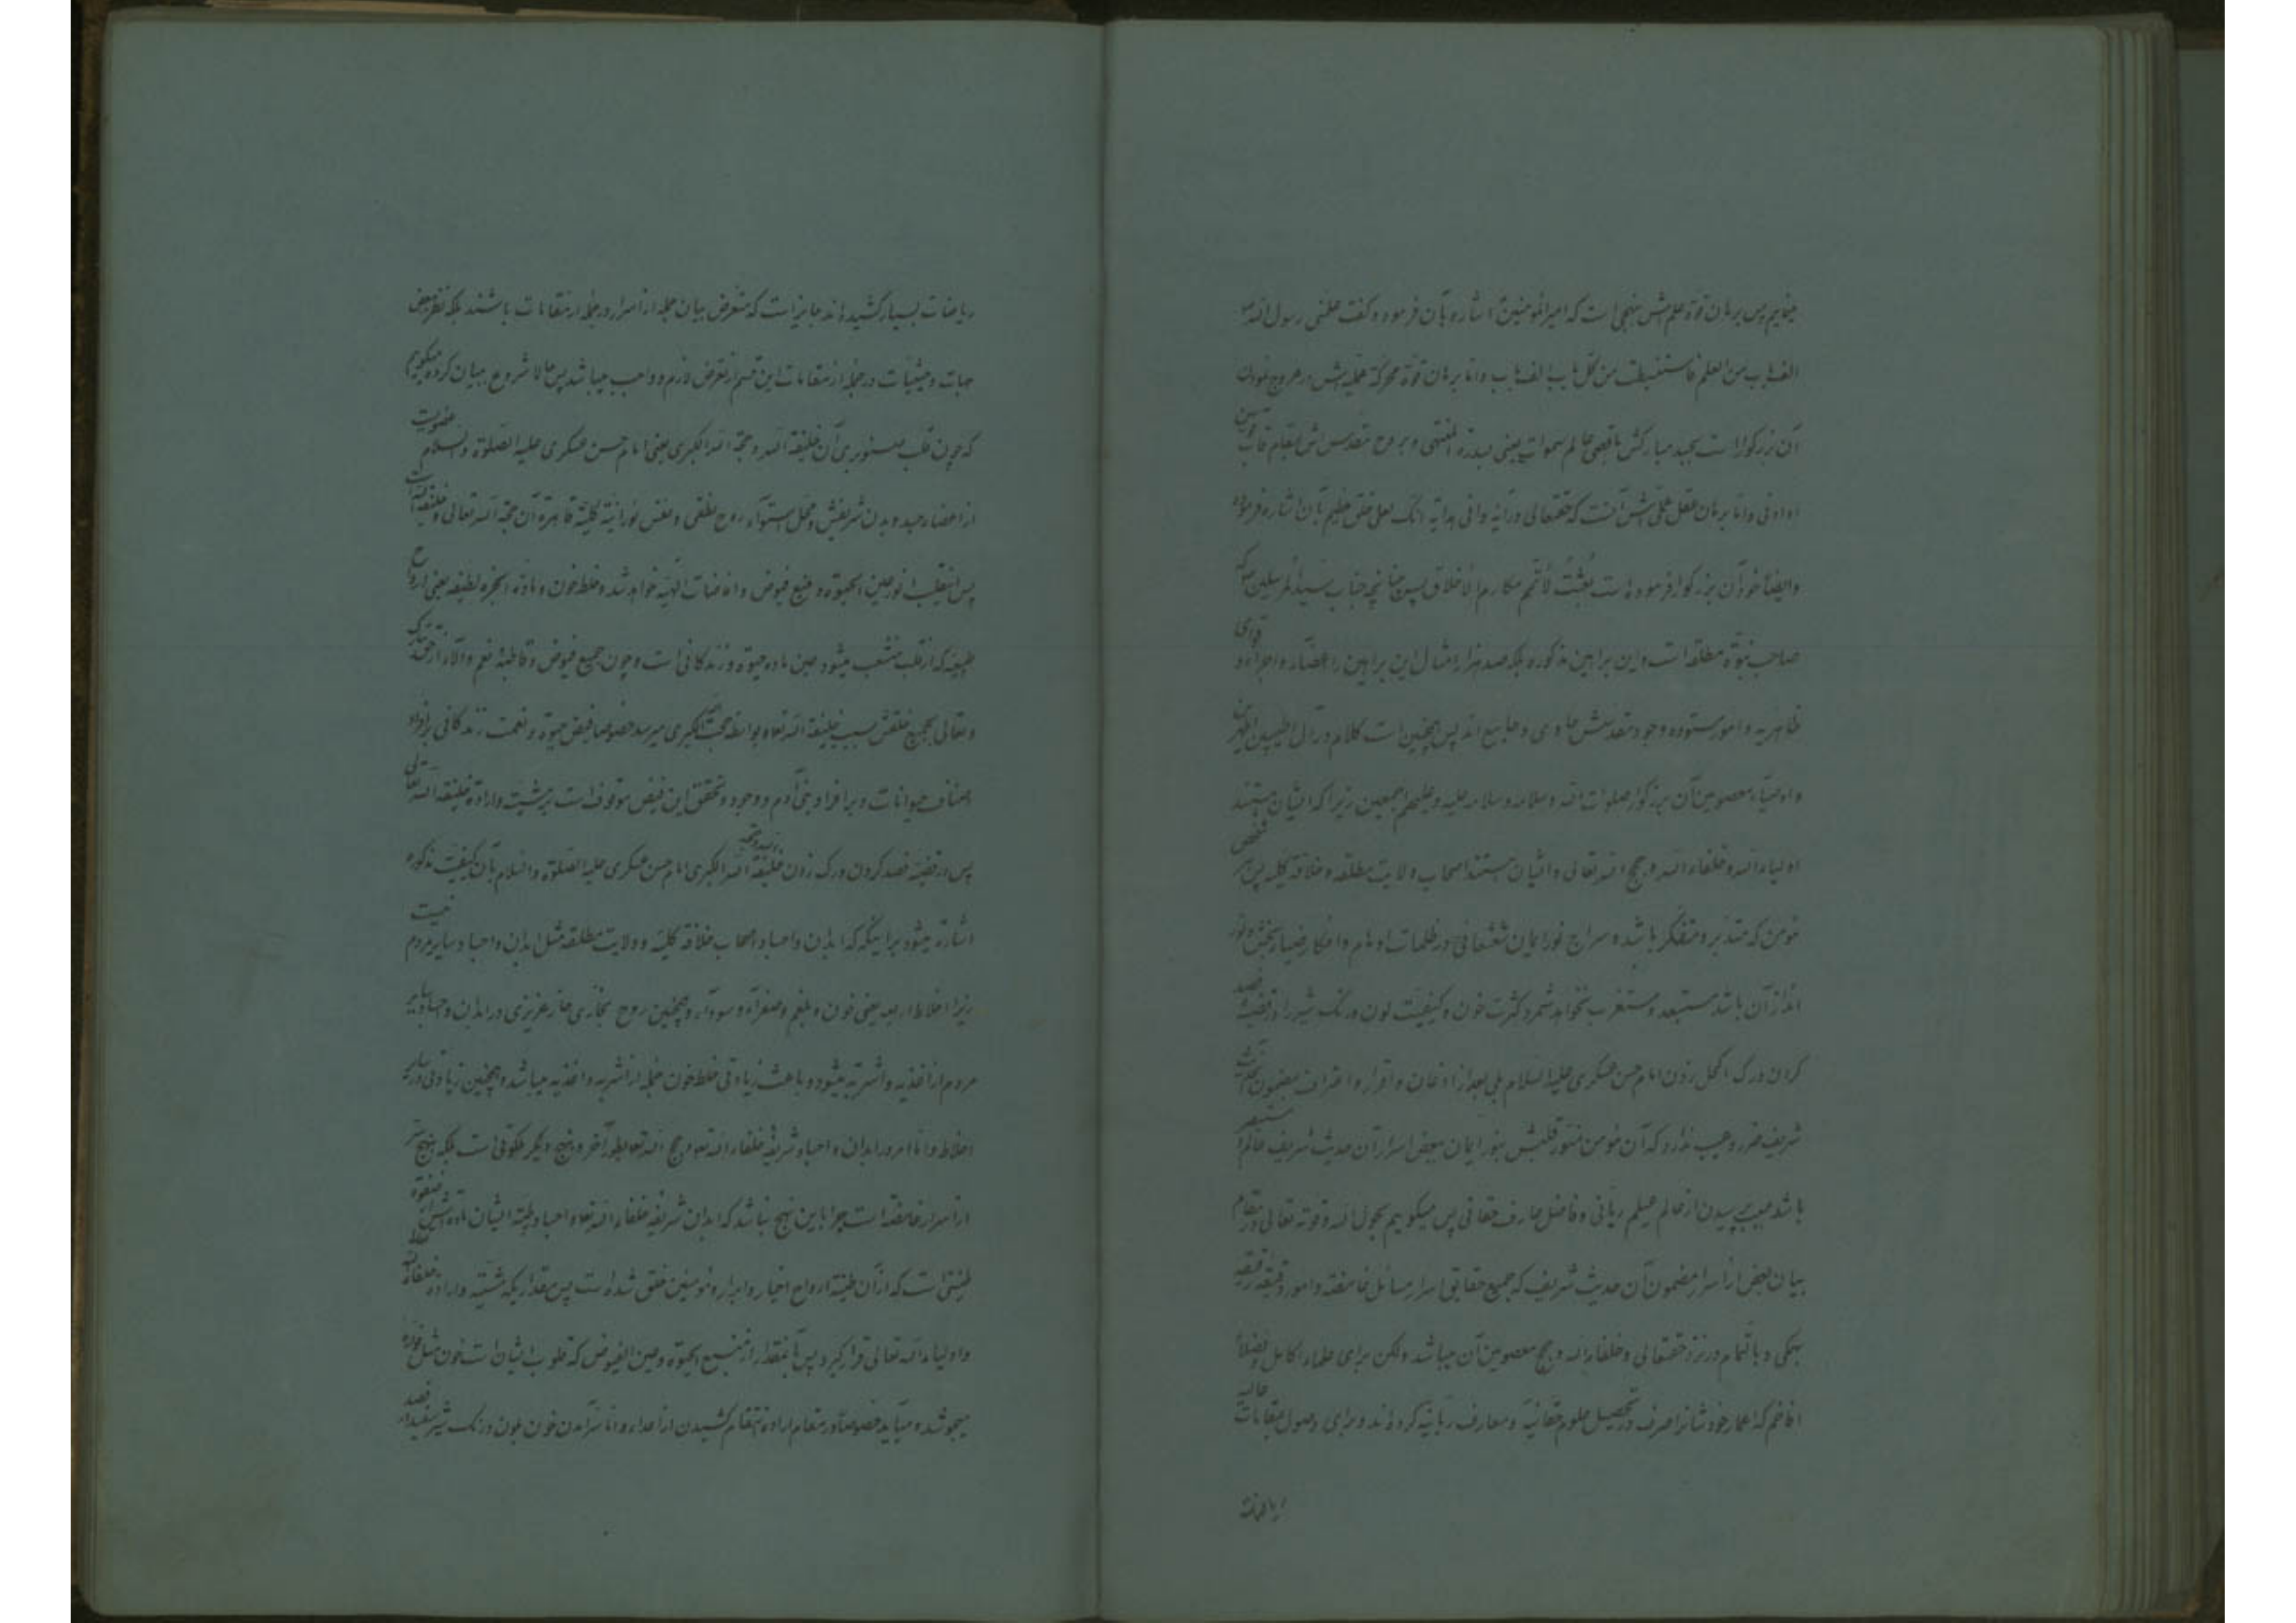 مینمایم پس برهان قوة علمش بنهجی است که امیرالمؤمنین اشاره بآن فرمود و گفت علمنی رسول الله ص
الف باب من العلم فاستنبطت من کل باب الف باب و اما برهان قوة محرکه عملیه‌اش در عروج نمودن
آن بزرگوار است بجسد مبارکش باقصی عالم سموات یعنی سدرة المنتهی و بروح مقدسش بمقام قاب قوسین
او ادنی و اما برهان عقل عملی‌اش آنست که حقتعالی در آیه وافی هدایه انک لعلی خلق عظیم بآن اشاره فرموده
و ایضا خود آن بزرگوار فرموده است بعثت لأتمم مکارم الأخلاق پس چنانچه جناب سید المرسلین ص که
صاحب نبوة مطلقه است و این براهین مذکوره بلکه صد هزار امثال این براهین را اعضاء و اجزاء و قوای
ظاهریه و امور ستوده وجود مقدسش حاوی و جامع اند پس همچنین است کلام در آل طیبین اطهرین
و اوصیاء معصومین آن بزرگوار صلوات الله و سلامه علیه و علیهم اجمعین زیرا که ایشان هستند
اولیاء الله و خلفاء الله و حجج الله تعالی و ایشان هستند اصحاب ولایت مطلقه و خلافة کلیه پس هر شخص
مؤمن که متدبر و متفکر باشد و سراج نور ایمان شعشعانی در ظلمات اوهام و افکار ضیاء بخش و نور
انداز آن باشد مستبعد و مستغرب نخواهد شمرد کثرت خون و کیفیت لون و رنگ شیر را در قضیه فصد
کردن و رگ اکحل زدن امام حسن عسکری علیه السلام بلی بعد از اذعان و اقرار و اعتراف بمضمون حدیث
شریف ضرر و عیب ندارد که آن مؤمن منور قلبش بنور ایمان ببعض اسرار آن حدیث شریف عالم مستبصر
باشد بسبب پرسیدن از عالم عیلم ربانی و فاضل عارف حقانی پس میگوییم بحول الله و قوته تعالی در مقام
بیان بعض از اسرار مضمون آن حدیث شریف که جمیع حقایق اسرار مسائل غامضه و امور دقیقه رقیقه
بهمگی و بالتمام در نزد حقتعالی و خلفاء الله و حجج معصومین آن میباشد ولکن برای علماء کامل و فضلاء
افاخم که اعمار خودشانرا صرف در تحصیل علوم حقانیه و معارف ربانیه کرده‌اند و برای وصول مقامات عالیه
ریاضات
ریاضات بسیار کشیده‌اند جایز است که متعرض بیان جمله از اسرار در جمله از مقامات باشند بلکه نظر ببعض
جهات و حیثیات در جمله از مقامات این قسم از تعرض لازم و واجب میباشد پس حالا شروع ببیان کرده میگویم
که چون قلب صنوبری آن خلیفة الله و حجة الله الکبری یعنی امام حسن عسکری علیه الصلوة والسلام عضویست
از اعضاء جسد و بدن شریفش و محل استواء روح نطقی و نفس نورانیه کلیه قاهره آن حجة الله تعالی و خلیفة الله است
پس این قلب انور عین الحیوة و منبع فیوض و افاضات الهیه خواهد شد و خلط خون و ماده ابخره لطیفه یعنی ارواح
طبیعیه که از قلب منشعب میشود عین ماده حیوة و زندگانی است و چون جمیع فیوض و قاطبه نعم و آلاء از حق تبارک
و تعالی بجمیع خلقش بسبب خلیفة الله تعالی و بواسطه حجت الله الکبری میرسد خصوصا فیض حیوة و نعمت زندگانی بر افراد
اصناف حیوانات و بر افراد بنی آدم و وجود و تحقق این فیض موقوف است بر مشیت و ارادة خلیفة الله تعالی
پس در قضیه فصد کردن و رگ زدن خلیفة الله و حجة الله الکبری امام حسن عسکری علیه الصلوة والسلام بآن کیفیت مذکوره
اشاره میشود بر اینکه که ابدان و اجساد اصحاب خلافة کلیه و ولایت مطلقه مثل ابدان و اجساد سایر مردم نیست
زیرا اخلاط اربعه یعنی خون و بلغم و صفراء و سوداء و همچنین روح بخاری حار غریزی در ابدان و اجساد سایر
مردم از اغذیه و اشربه میشود و باعث زیادتی خلط خون جمله از اشربه و اغذیه میباشد و همچنین زیادتی در سایر
اخلاط و اما امر در ابدان و اجساد شریفه خلفاء الله تعالی و حجج الله تعالی بطور آخر و بنهج دیگر ملکوتی است بلکه بنهج سر
از اسرار غامضه است چرا باین نهج نباشد که ابدان شریفه خلفاء الله تعالی و اجساد طیبه ایشان ماده‌اش صفوة
طینتی است که از آن طینة ارواح اخیار و ابرار و مؤمنین خلق شده است پس مقداریکه مشیت و اراده خلفاء الله
و اولیاء الله تعالی قرار گیرد پس آنمقدار از منبع الحیوة و عین الفیوض که قلوب ایشان است خون مثل فواره
میجوشد و میآید خصوصا در مقام اراده انتقام کشیدن از اعداء و اما برآمدن خون بلون و رنگ شیر سفید در فصد